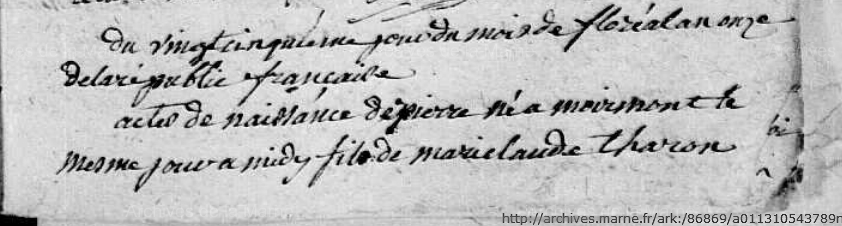 du vingt cinquieme jour du mois de floréal an onze
de la république française
actes de naissance de pierre né a moirmont le
mesme jour a midy fils de marie claude tharon
http://archives.marne.fr/ark:/86869/a011310543789r